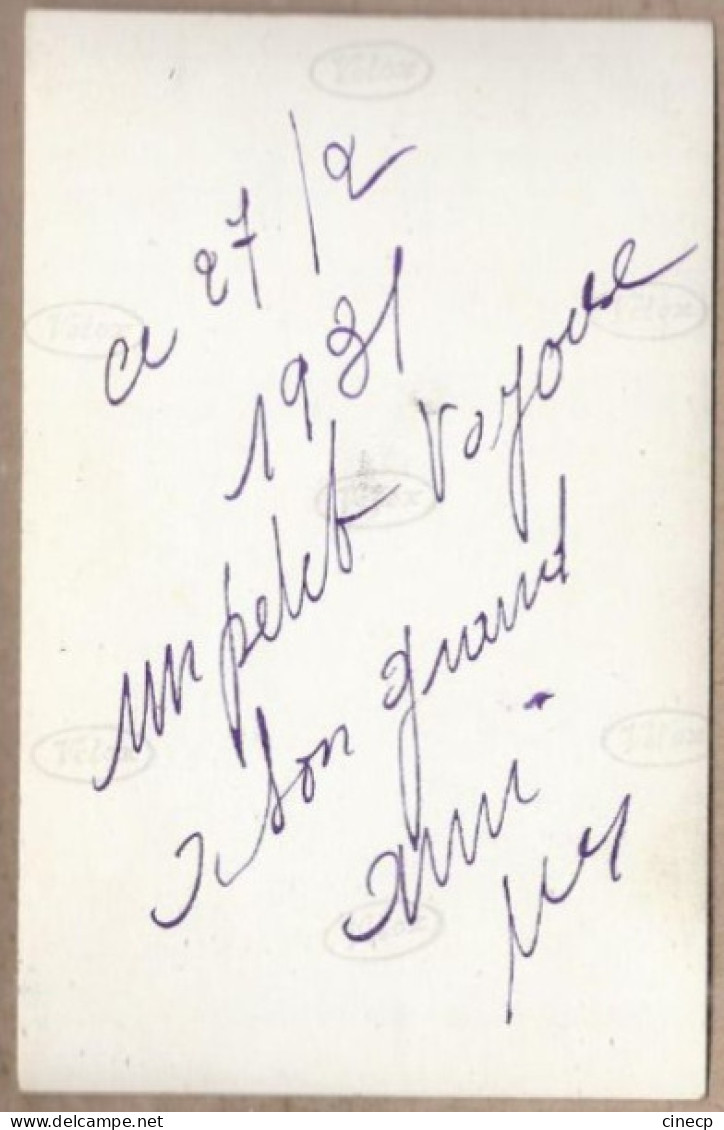 Velox
ce 27/2
1931
un petit voyou
a son grand
ami
Velox
Velox
Velox
Velox
Velox
delcampe.net
cinecp